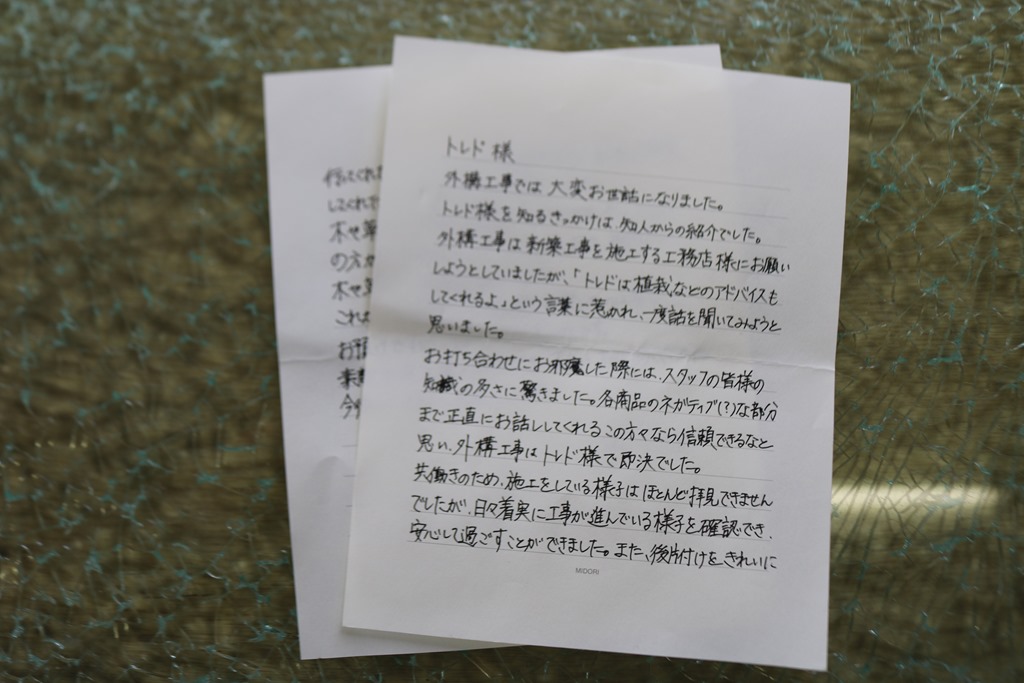 トレド 様
外構工事では大変お世話になりました。
トレド様を知るきっかけは、知人からの紹介でした。
外構工事は新築工事を施工する工務店様にお願い
しようとしていましたが、「トレドは植栽などのアドバイスも
してくれるよ」という言葉に惹かれ、一度話を聞いてみようと
思いました。
お打ち合わせにお邪魔した際には、スタッフの皆様の
知識の多さに驚きました。各商品のネガティブ(?)な部分
まで正直にお話ししてくれるこの方々なら信頼できるなと
思い、外構工事はトレド様で即決でした。
共働きのため、施工をしている様子はほとんど拝見できません
でしたが、日々着実に工事が進んでいる様子を確認でき、
安心して過ごすことができました。また、後片付けをきれいに
MIDORI
してくれ
木や
の方が
木や
これ
お
今